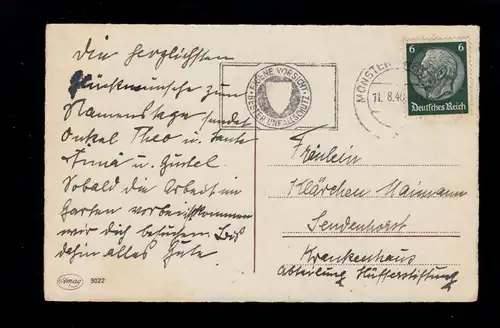 Die herzlichsten
Glückwünsche zum
Namenstage sendet
Onkel Theo u. Tante
Anna u. Gustel
Sobald die Arbeit im
Garten vorbei ist kommen
wir dich besuchen. Bis
dahin alles Gute.
9022
EIGENE VORSICHT
BESTER UNFALLSCHUTZ
MÜNSTER
11. 8. 40
6 6
Deutsches Reich
Fräulein
Klärchen Naimann
Sendenhorst
Krankenhaus
Abteilung